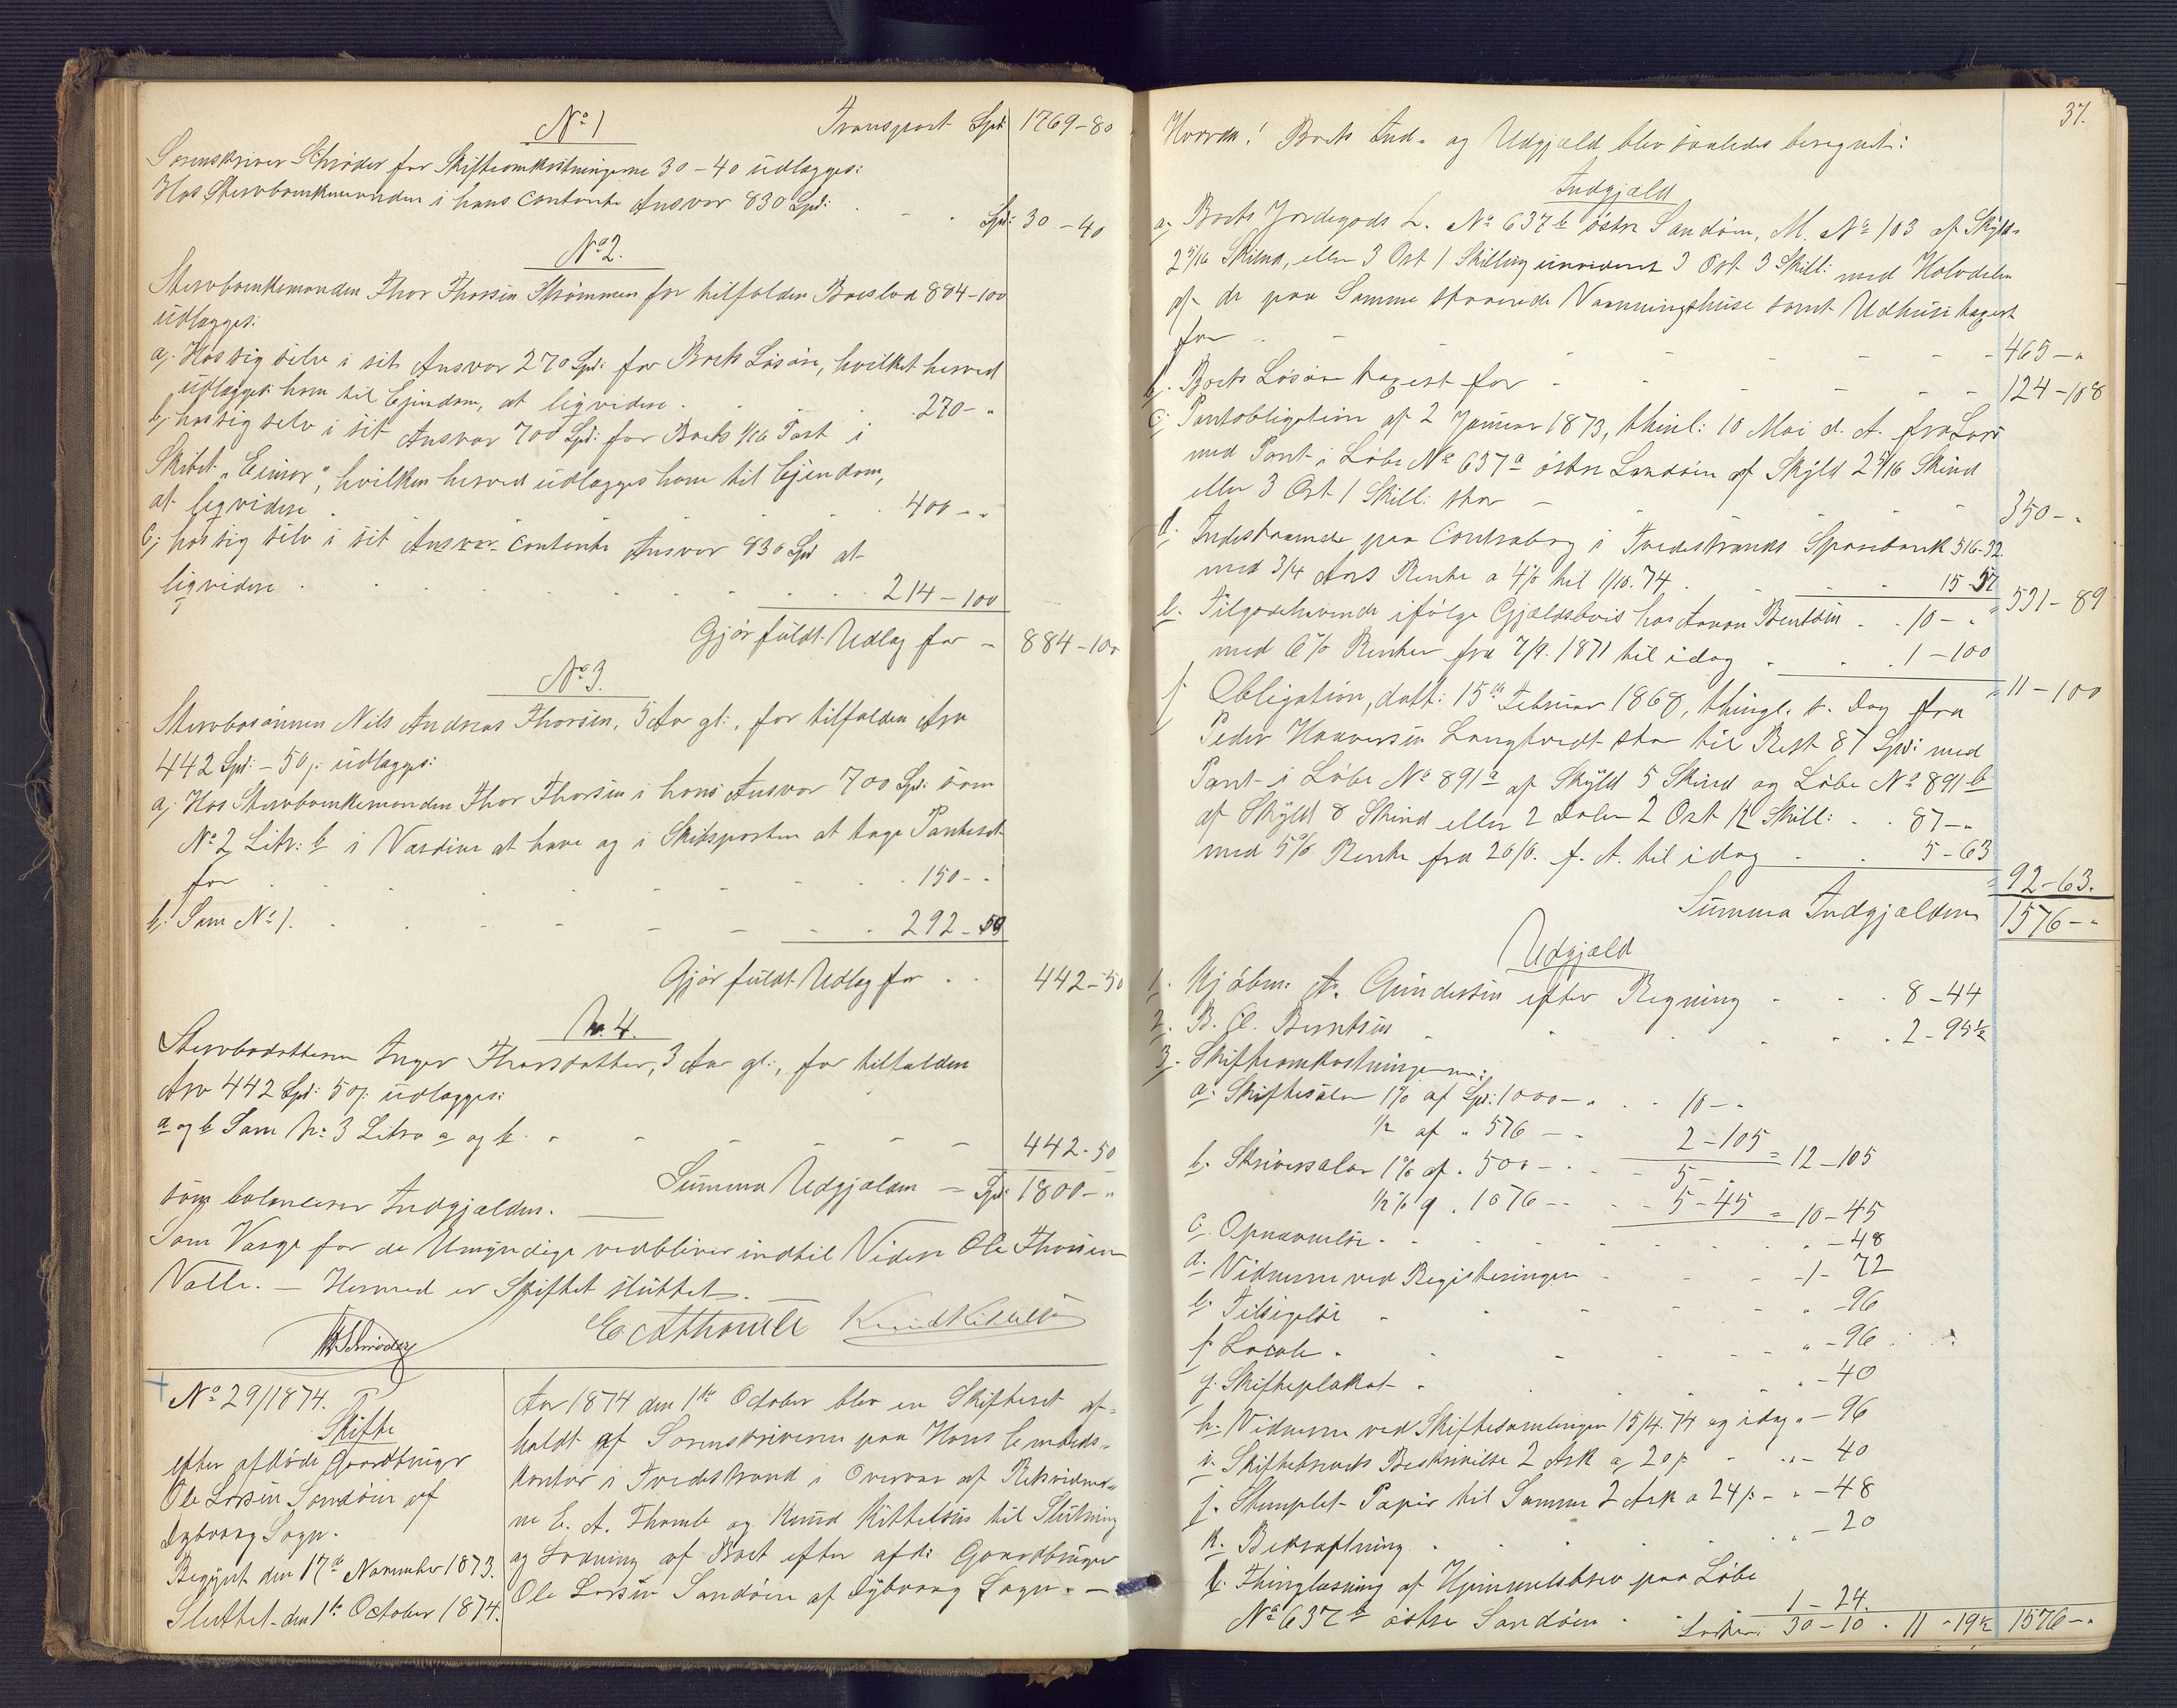 Transport Spd 1769-80
No 1
Sorenskriver Schrøder for Skifteomkostningerne 30-40 udlægges:
Hos Stervboenkemanden i hans contante Ansvar 830 Spd: Spd: 30-40
No 2.
Stervboenkemanden Thor Thorsen Strømmen for tilfalden Boeslod 884-100
udlægges:
a, Hos sig selv i sit Ansvar 270 Spd: for Boets Løsøre, hvilket herved
udlægges ham til Ejendom, at liqvidere 270-"
b, hos sig selv i sit Ansvar 700 Spd: for Boets 1/16 Part i
Skibet "Eimar", hvilken herved udlægges ham til Ejendom,
at liqvidere 400-"
c, hos sig selv i sit Ansvar contante Ansvar 930 Spd at
liqvidere 214-100
Gjør fuldt Udlæg for - 884-100
No 3.
Stervbosønnen Nils Andreas Thorsen, 5 Aar gl:, for tilfalden Arv
442 Spd: - 50 s: udlægges:
a, Hos Stervboenkemanden Thor Thorsen i hans Ansvar 700 Spd: som
No 2 Litr: b i Værdien at have og i Skibsparten at tage Panteret
for 150-"
b: Som No 1. 292-50
Gjør fuldt Udlæg for 442-50
No. 4.
Stervbodatteren Inger Thorsdatter, 3 Aar gl:, for tilfalden
Arv 442 Spd: 50 s: udlægges:
a og b Som No 3 Litra a og b. 442-50
Summa Udgjælden = Spd: 1800-"
som balancerer Indgjælden.
Som Værge for de Umyndige vedbliver indtil Videre Ole Thorsen
Valle. - Hermed er Skiftet sluttet.
Schrøder E A Thomle Knud Kittelsen
No 29/1874.
Skifte
efter afdøde Gaardbruger
Ole Larsen Sandøen af
Dybvaag Sogn.
Begynt den 17de November 1873.
Sluttet den 1ste October 1874.
Aar 1874 den 1ste October blev en Skifteret af-
holdt af Sorenskriveren paa Hans Embeds-
kontor i Tvedestrand i Overvær af Retsvidner-
ne E. A. Thomle og Knud Kittelsen til Slutning
og Lodning af Boet efter afd: Gaardbruger
Ole Larsen Sandøen af Dybvaag Sogn. -
37.
Hvorda! Boets Ind- og Udgjæld blev saaledes beregnet:
Indgjæld
a, Boets Jordegods L. No 637 b østre Sandøen, M. No 103 af Skyld
2 5/16 Skind, eller 3 Ort 1 Skilling urevideret 3 Ort 3 Skill: med Halvdelen
af de paa Samme staaende Vaaningshuse samt Udhuse taxeret
for 465-"
b. Boets Løsøre taxeret for 124-108
c, Pantobligation af 2 Januar 1873, thinl: 10 Mai d. A. fra Lars
med Pant i Løbe No 637 a østre Sandøen af Skyld 2 5/16 Skind
eller 3 Ort 1 Skill: stor 350-"
d. Indestaaende paa Contrabog i Tvedestrands Sparebank 516-32
med 3/4 Aars Rente a 4% til 1/10. 74 15-57 = 531-89
e. Tilgodehavende ifølge Gjældsbevis hos Aanon Bentsen 10-"
med 6% Renter fra 7/9. 1871 til idag 1-100 = 11-100
f. Obligation, datt: 15de Februar 1868, thingl. s. Dag fra
Peder Haaversen Langtvedt stor til Rest 87 Spd: med
Pant i Løbe No 891 a af Skyld 5 Skind og Løbe No 891 b
af Skyld 8 Skind eller 2 Daler 2 Ort 12 Skill: 87-"
med 5% Rente fra 20/6. f. A. til idag 5-63
= 92-63.
Summa Indgjælden 1576-"
Udgjæld
1. Kjøbm: A. Gundersen efter Regning 8-44
2. B. C. Berntsen 2-95½
3. Skifteomkostningerne:
a. Skiftesalær 1% af Spd: 1000-" 10-"
½ af " 576-" 2-105 = 12-105
b. Skriversalær 1% af " 500-" 5-"
½% af " 1076-" 5-45 = 10-45
c. Opnævnelse "-48
d. Vidnerne ved Registeringen 1-72
e. Tilsigelse "-96
f. Locale "-96
g. Skifteplakat "-40
h. Vidnerne ved Skiftesamlingen 15/4. 74 og idag "-96
i. Skiftebrevets Beskrivelse 2 Ark a 20 s "-40
j. Stemplet Papir til Samme 2 Ark a 24 s "-48
k. Bekræftning "-20
l. Thinglæsning af Hjemmelsbrev paa Løbe
No 637 b østre Sandøen 1-24.
Lateris 30-10 " 11-19½ 1576-"